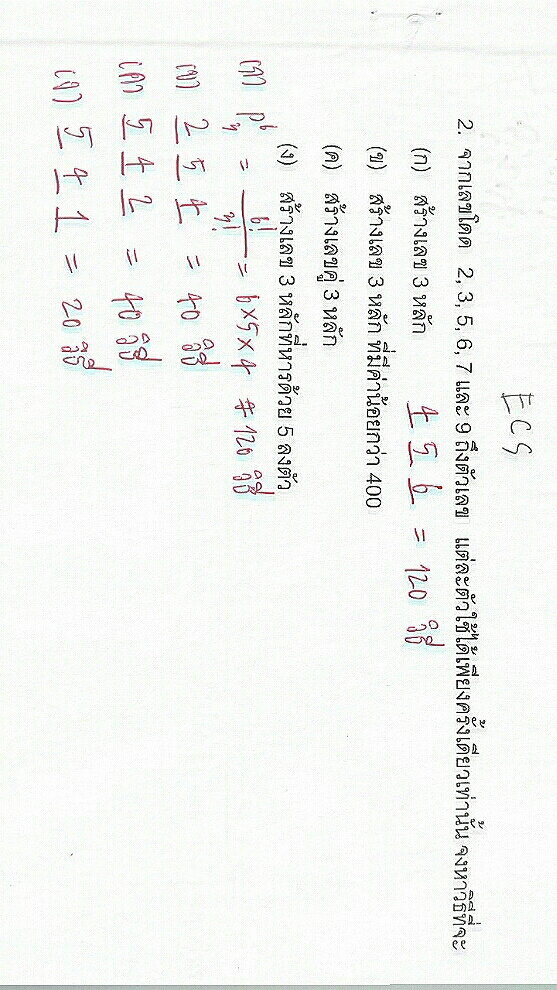 ECS
2. จากเลขโดด 2, 3, 5, 6, 7 และ 9 ถึงตัวเลข แต่ละตัวใช้ได้เพียงครั้งเดียวเท่านั้น จงหาวิธีที่จะ
(ก) สร้างเลข 3 หลัก 4 5 6 = 120 วิธี
(ข) สร้างเลข 3 หลัก ที่มีค่าน้อยกว่า 400
(ค) สร้างเลขคู่ 3 หลัก
(ง) สร้างเลข 3 หลักที่หารด้วย 5 ลงตัว
= 6! / 3! = 6×5×4 # 120 วิธี
(ข) 2 5 4 = 40 วิธี
(ค) 5 4 2 = 40 วิธี
(ง) 5 4 1 = 20 วิธี